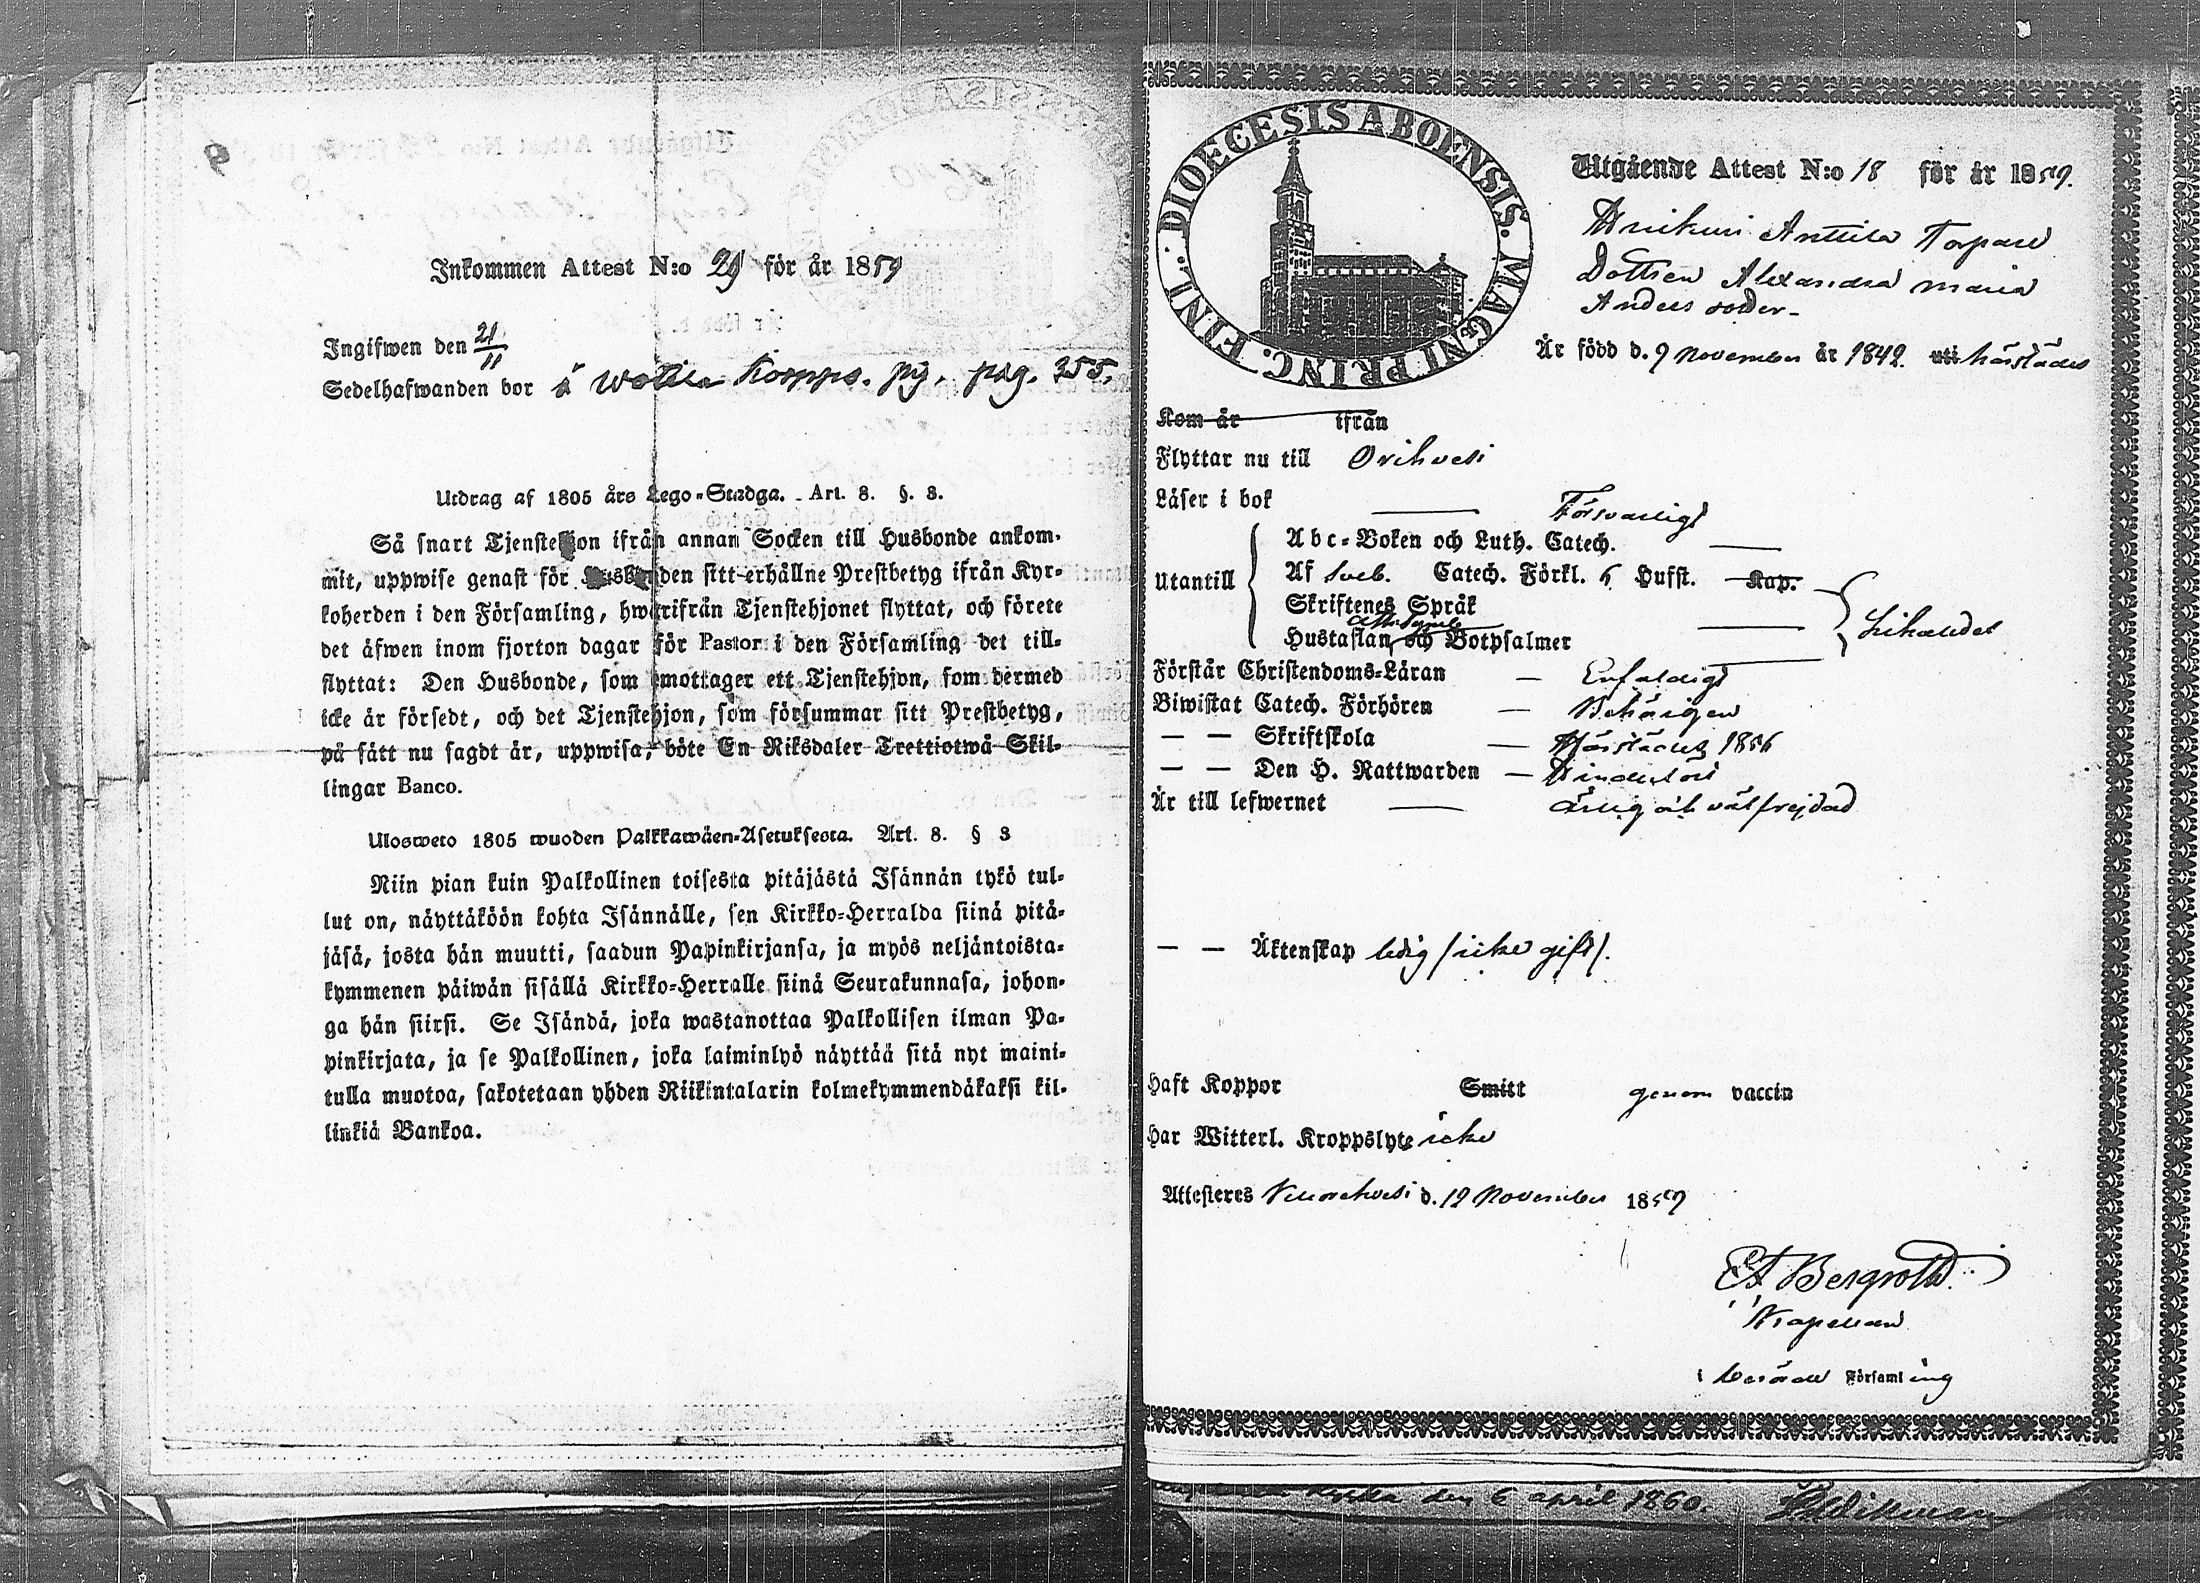 Inkommen Attest N:o 29 för år 1859
Ingifwen den 21/11
Sedelhafwanden bor å Korppo. pig. pag. 355.
Utdrag af 1805 års Lego-Stadga. Art. 8. §. 3.
Så snart Tjenstehjon ifrån annan Socken till Husbonde ankom-
mit, uppwise genast för Husbonden sitt erhållne Prestbetyg ifrån Kyr-
koherden i den Församling, hwarifrån Tjenstehjonet flyttat, och förete
det äfwen inom fjorton dagar för Pastor i den Församling det till-
flyttat: Den Husbonde, som emottager ett Tjenstehjon, som dermed
icke är försedt, och det Tjenstehjon, som försummar sitt Prestbetyg,
på sätt nu sagdt är, uppwisa, böte En Riksdaler Trettiotwå Skil-
lingar Banco.
Ulosweto 1805 wuoden Palkkawäen-Asetuksesta. Art. 8. § 3
Niin pian kuin Palkollinen toisesta pitäjästä Isännän tykö tul-
lut on, näyttäköön kohta Isännälle, sen Kirkko-Herralda siinä pitä-
jäsä, josta hän muutti, saadun Papinkirjansa, ja myös neljäntoista-
kymmenen päiwän sisällä Kirkko-Herralle siinä Seurakunnasa, johon-
ga hän siirsi. Se Isändä, joka wastanottaa Palkollisen ilman Pa-
pinkirjata, ja se Palkollinen, joka laiminlyö näyttää sitä nyt maini-
tulla muotoa, sakotetaan yhden Riikintalarin kolmekymmendäkaksi kil-
linkiä Bankoa.
DIOECESIS ABOENSIS. MAGNI PRINC. FINL.
Utgående Attest N:o 18 för år 1859.
Anttila Torpare
Dottren Alexandra Maria
Anders dotter
Är född d. 9 November år 1842. uti härstädes
Kom år ifrån
Flyttar nu till Orihvesi
Läser i bok Försvarligt
Utantill
Abc-Boken och Luth. Catech.
Af Sveb. Catech. Förkl. 5 Hufst. Kap.
Skriftenes Språk
Ath. Symb.
Hustaflan, och Botpsalmer
Likaledes
Förstår Christendoms-Läran Enfaldigt
Biwistat Catech. Förhören Behörigen
— — Skriftskola Härstädes 1856
— — Den H. Nattwarden
Är till lefwernet Ärlig och välfrejdad
— — Äktenskap ledig (icke gift).
Haft Koppor Smitt genom vaccin
Har Witterl. Kroppslyte icke
Attesteres Kuorehvesi d. 19 November 1859
Bergroth
Kapellan
i berörde Församling
den 6 april 1860.